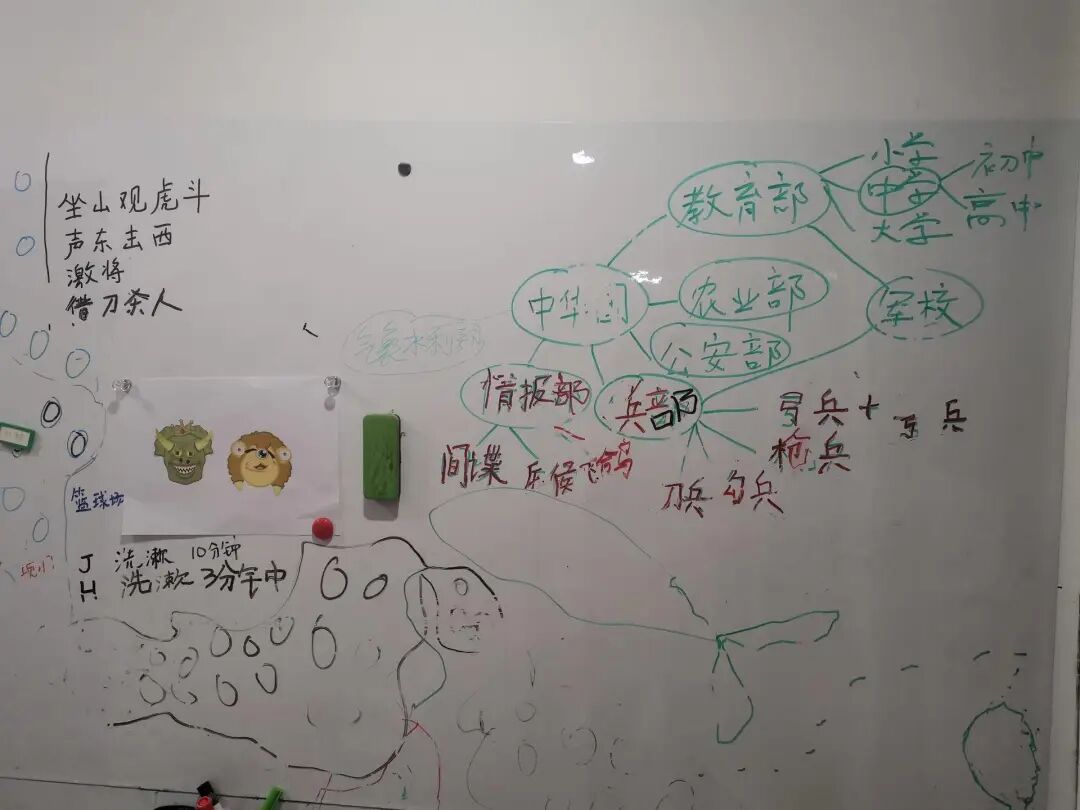 坐山观虎斗
声东击西
激将
借刀杀人
教育部
小学
中学
大学
初中
高中
中华国
农业部
军校
公安部
气象水利部
情报部
兵部
间谍
斥候飞鸽
弓兵+
兵
枪兵
刀兵
勾兵
篮球场
J 洗漱 10分钟
H 洗漱 3分钟中